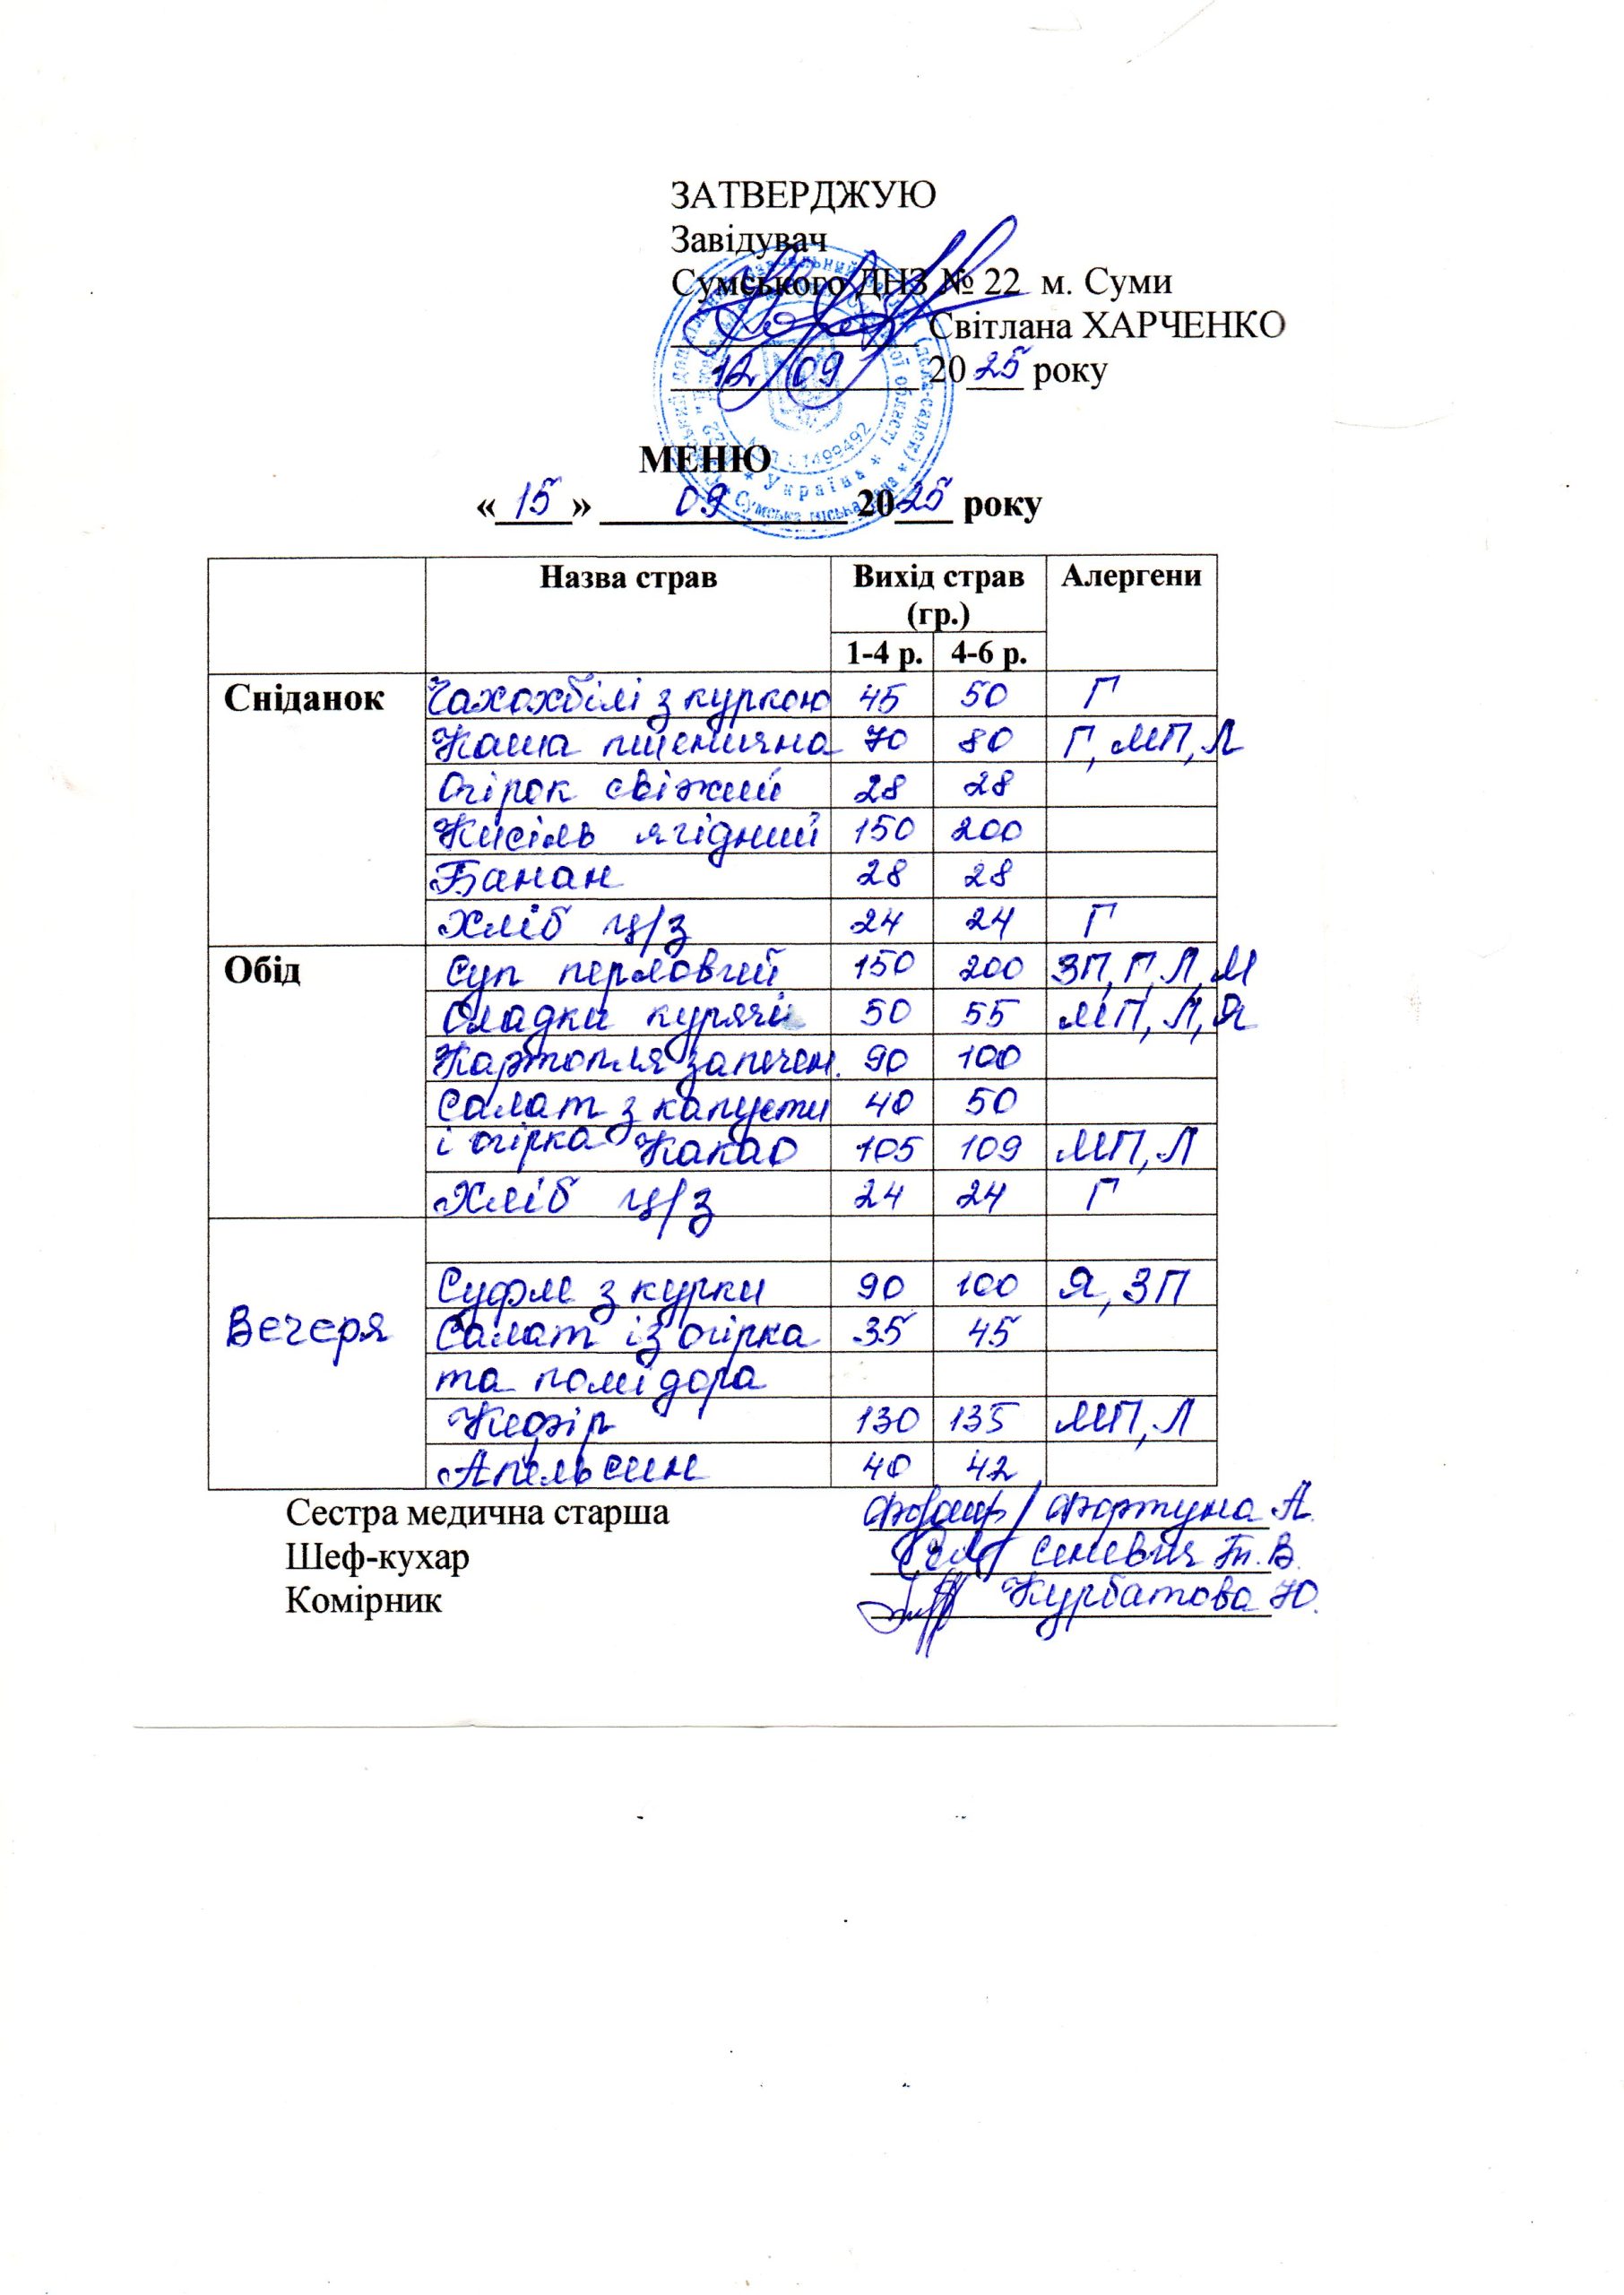 ЗАТВЕРДЖУЮ
Завідувач
Сумського ДНЗ № 22 м. Суми
Світлана ХАРЧЕНКО
12/09 2025 року
МЕНЮ
«15» 09 2025 року
Назва страв Вихід страв (гр.) Алергени
1-4 р. 4-6 р.
Сніданок Чахохбілі з куркою 45 50 Г
Каша пшенична 70 80 Г, МП, Л
Огірок свіжий 28 28
Кисіль ягідний 150 200
Банан 28 28
Хліб ц/з 24 24 Г
Обід Суп перловий 150 200 ЗП, Г, Л, М
Оладки курячі 50 55 МП, Л, Я
Картопля запечен. 90 100
Салат з капусти 40 50
і огірка Какао 105 109 МП, Л
Хліб ц/з 24 24 Г
Суфле з курки 90 100 Я, ЗП
Вечеря Салат із огірка 35 45
та помідора
Кефір 130 135 МП, Л
Апельсин 40 42
Сестра медична старша Фортуна А.
Шеф-кухар В.
Комірник Курбатова Ю.